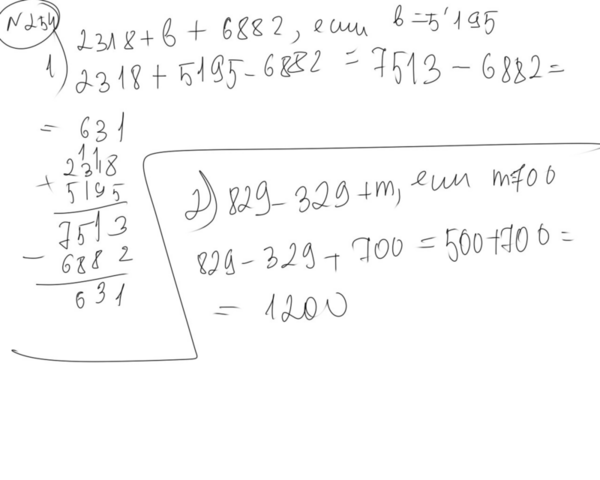 N234
2318 + в + 6882, если в = 5'195
1) 2318 + 5195 - 6882 = 7513 - 6882 =
= 631
11
2318
+ 5195
7513
- 6882
631
2) 829 - 329 + m, если m=700
829 - 329 + 700 = 500 + 700 =
= 1200